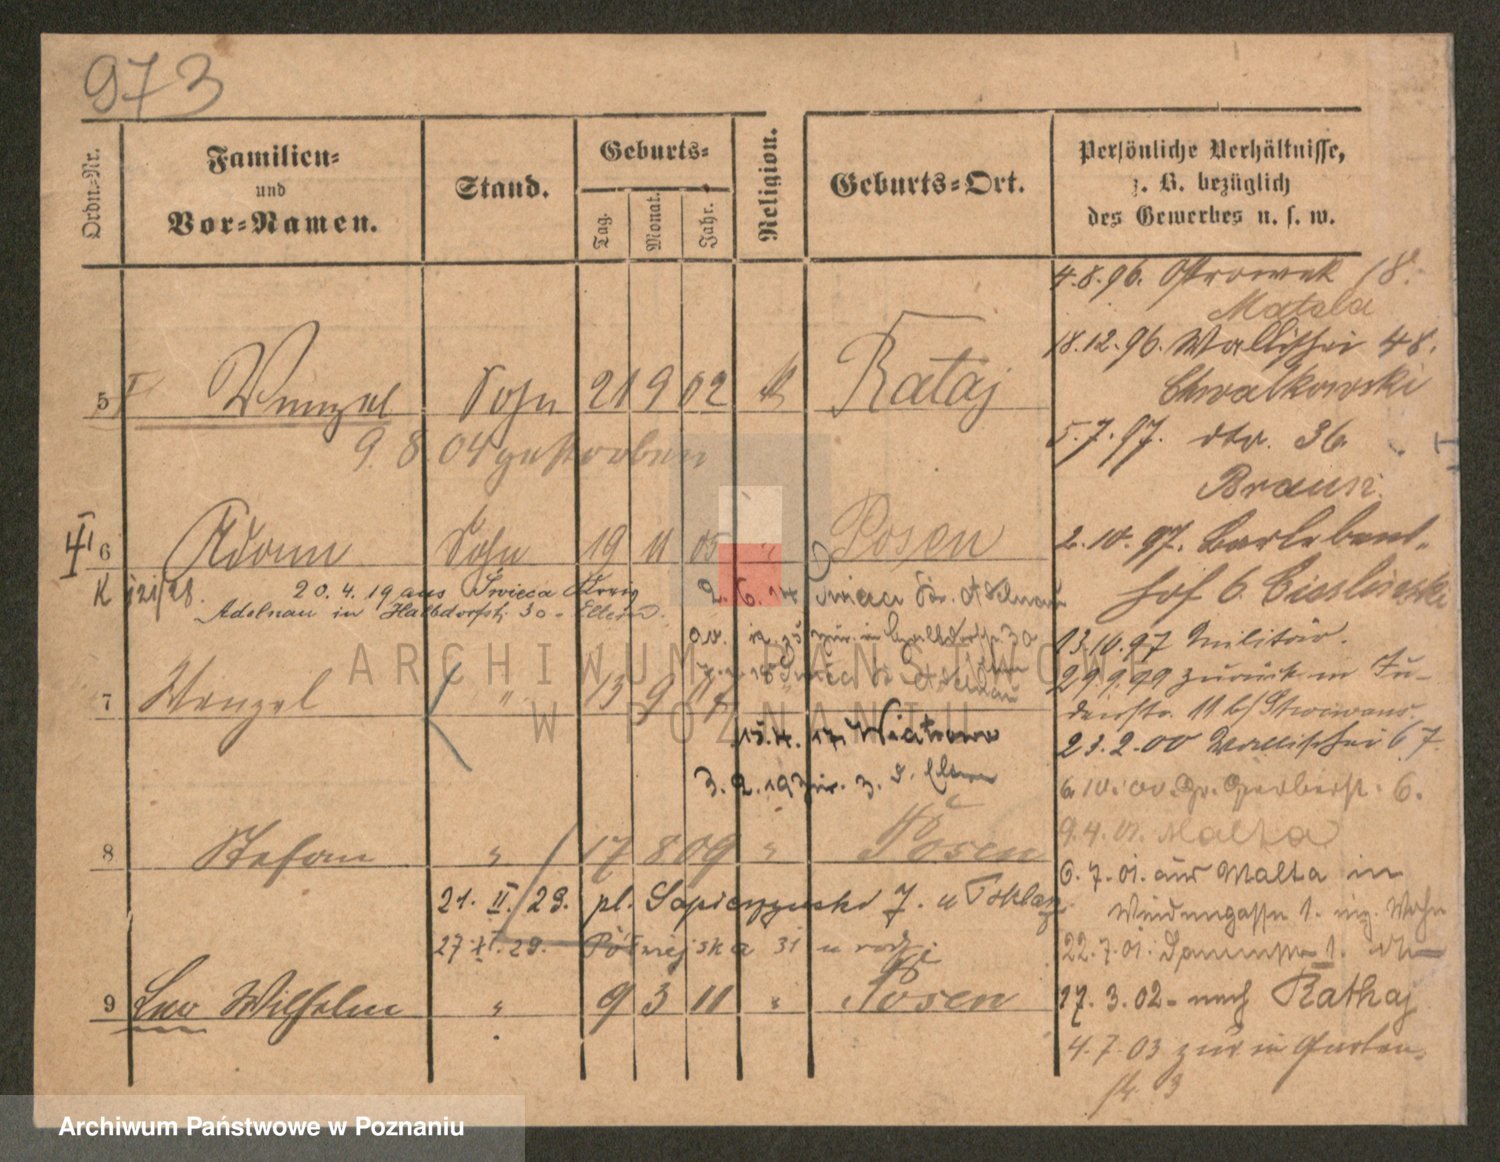 973
Ordn.-Nr.
Familien-
und
Vor-Namen.
Stand.
Geburts-
Tag.
Monat.
Jahr.
Religion.
Geburts-Ort.
Persönliche Verhältnisse,
z. B. bezüglich
des Gewerbes u. s. w.
5 Wenzel Sohn 21 9 02 k Rataj
9. 8. 04 gestorben
6 Adam Sohn 19 11 05 " Posen
K 121/28.
20. 4. 19 aus Kreis
Adelnau in Halbdorfstr. 30 - Eltern.
2. 6. 14 Adelnau
7 Wenzel " 13 9 07
15. 4. 17. Wiatrowo
3. 2. 19 zur. z. d. Eltern
8 Stefan " 17 8 09 " Posen
21. II. 29. pl. Sapieżyński 7. u
27. XI. 29. Półwiejska 31 u
9 Leo Wilhelm " 9 3 11 " Posen
4.8.96. Ostrowek 18.
Matela
18.12.96. Wallischei 48.
Chwalkowski
5.7.97. dto. 36.
2.10.97. Barleben-
hof 6.
13.10.97 Militär.
29.9.99 zurück in Ju-
denstr. 11 b/
23.2.00 Wallischei 67.
6.10.00. Gr. Gerberstr. 6.
9.4.01. Malta
6.7.01. aus Malta in
Windengasse 1.
22.7.01. Dammstr. 1.
17.3.02. nach Rathaj
4.7.03 zur. in Garten-
str. 3
ARCHIWUM PAŃSTWOWE
W POZNANIU
Archiwum Państwowe w Poznaniu